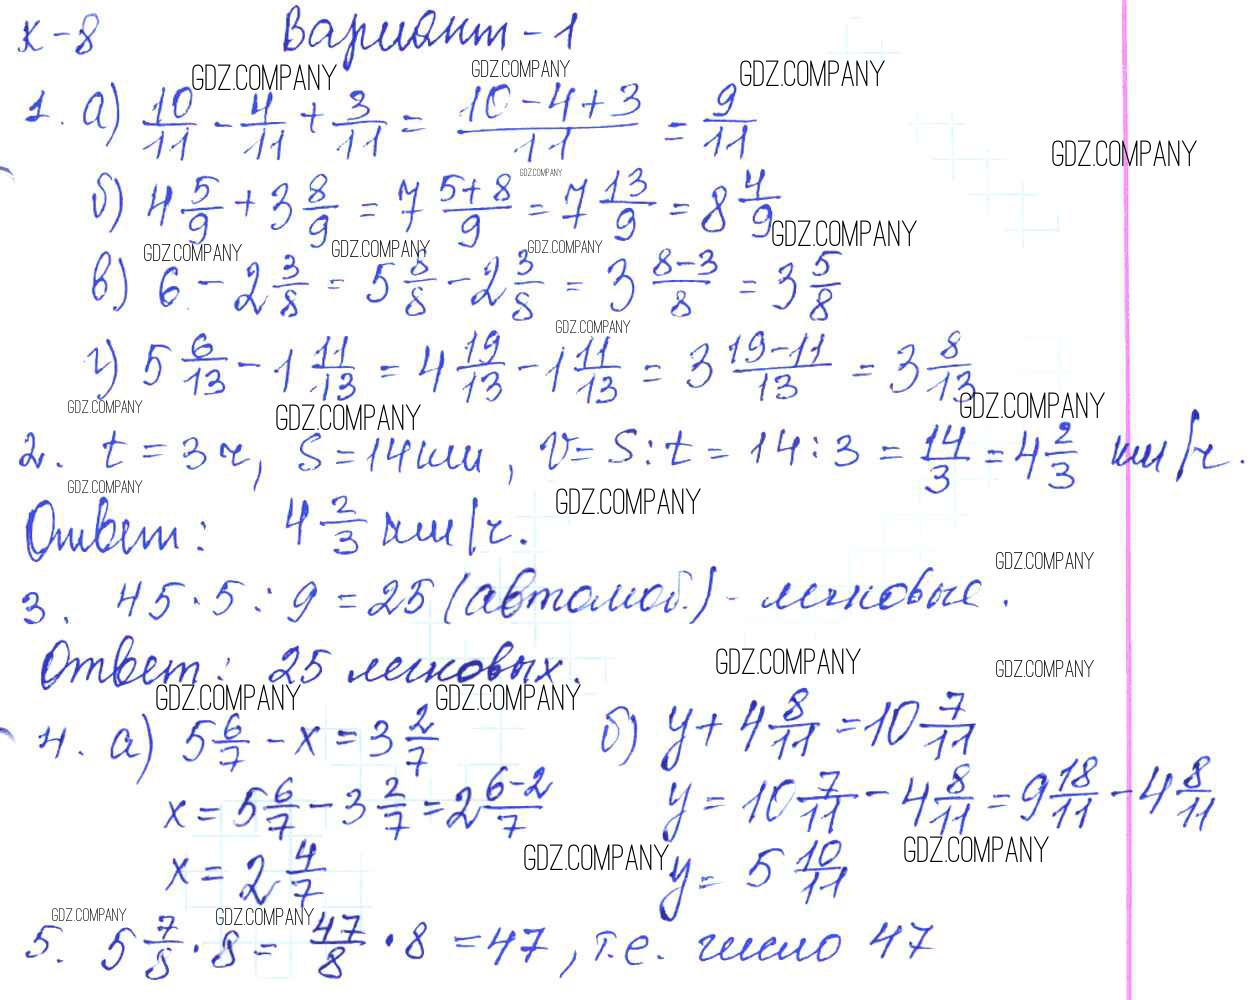 К-8 Вариант-1
GDZ.COMPANY GDZ.COMPANY GDZ.COMPANY
1. а) 10/11 - 4/11 + 3/11 = (10-4+3)/11 = 9/11
GDZ.COMPANY GDZ.COMPANY
б) 4 5/9 + 3 8/9 = 7 (5+8)/9 = 7 13/9 = 8 4/9
GDZ.COMPANY GDZ.COMPANY GDZ.COMPANY GDZ.COMPANY
в) 6 - 2 3/8 = 5 8/8 - 2 3/8 = 3 (8-3)/8 = 3 5/8
GDZ.COMPANY
г) 5 6/13 - 1 11/13 = 4 19/13 - 1 11/13 = 3 (19-11)/13 = 3 8/13
GDZ.COMPANY GDZ.COMPANY GDZ.COMPANY
2. t = 3 ч, S = 14 км, V = S : t = 14 : 3 = 14/3 = 4 2/3 км/ч.
GDZ.COMPANY GDZ.COMPANY
Ответ: 4 2/3 км/ч.
GDZ.COMPANY
3. 45 · 5 : 9 = 25 (автомоб.) - легковые.
Ответ: 25 легковых.
GDZ.COMPANY GDZ.COMPANY
GDZ.COMPANY GDZ.COMPANY
4. а) 5 6/7 - х = 3 2/7 б) у + 4 8/11 = 10 7/11
х = 5 6/7 - 3 2/7 = 2 (6-2)/7 у = 10 7/11 - 4 8/11 = 9 18/11 - 4 8/11
GDZ.COMPANY GDZ.COMPANY
х = 2 4/7 у = 5 10/11
GDZ.COMPANY GDZ.COMPANY
5. 5 7/8 · 8 = 47/8 · 8 = 47, т.е. число 47